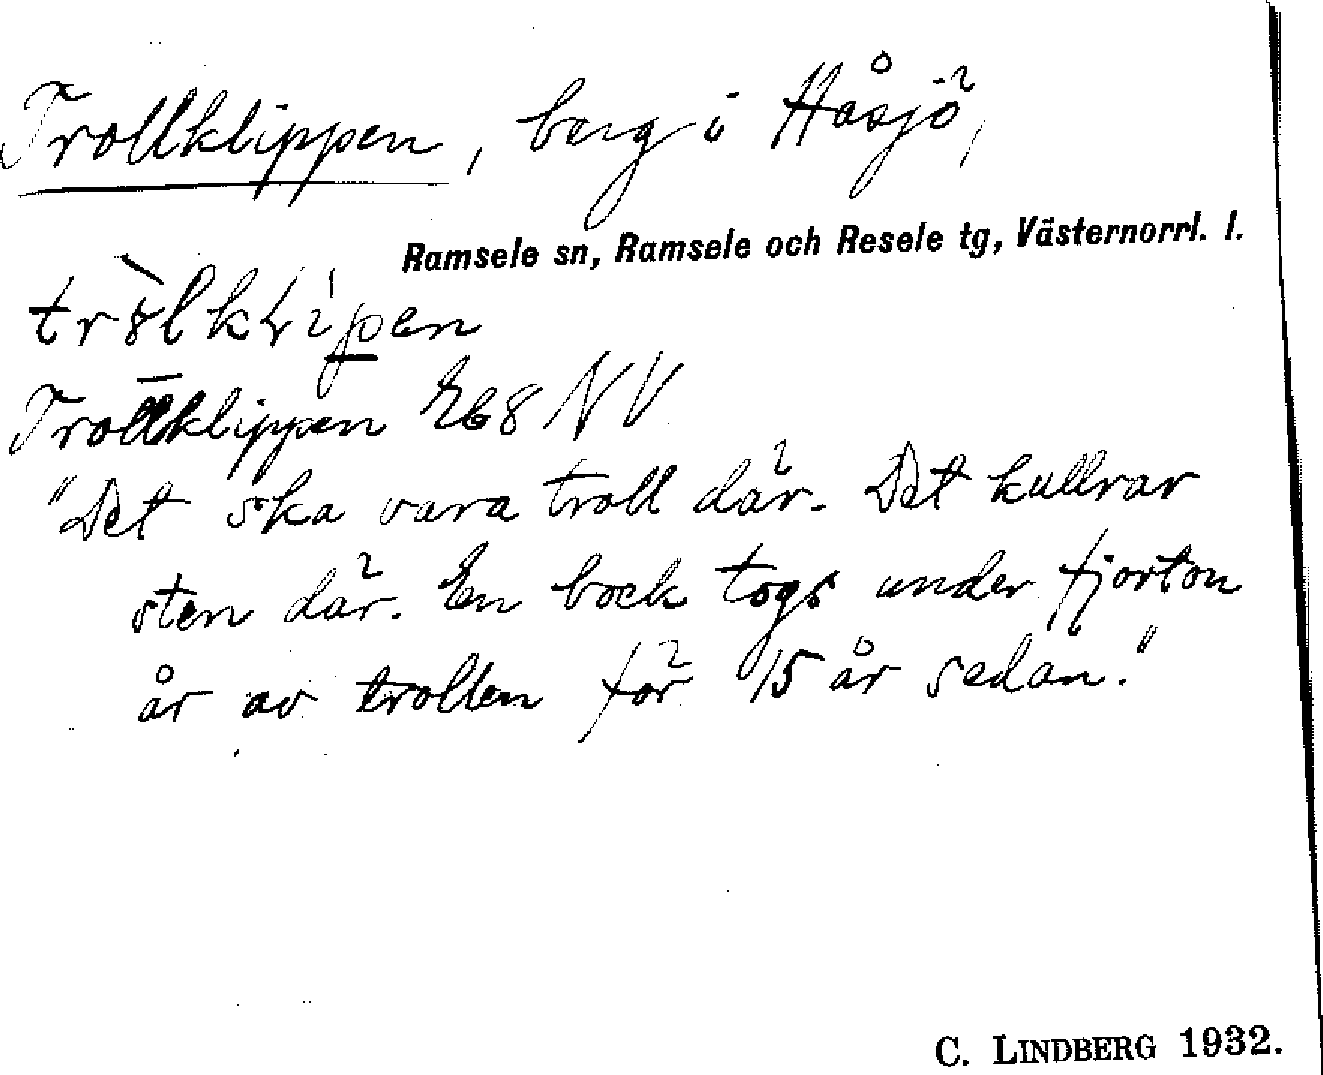 Trollklippen, berg i Håsjö,
Ramsele sn, Ramsele och Resele tg, Västernorrl. l.
Trollklippen Eb8 NV
"Det ska vara troll där. Det kullrar
sten där. En bock togs under fjorton
år av trollen för 15 år sedan."
C. LINDBERG 1932.